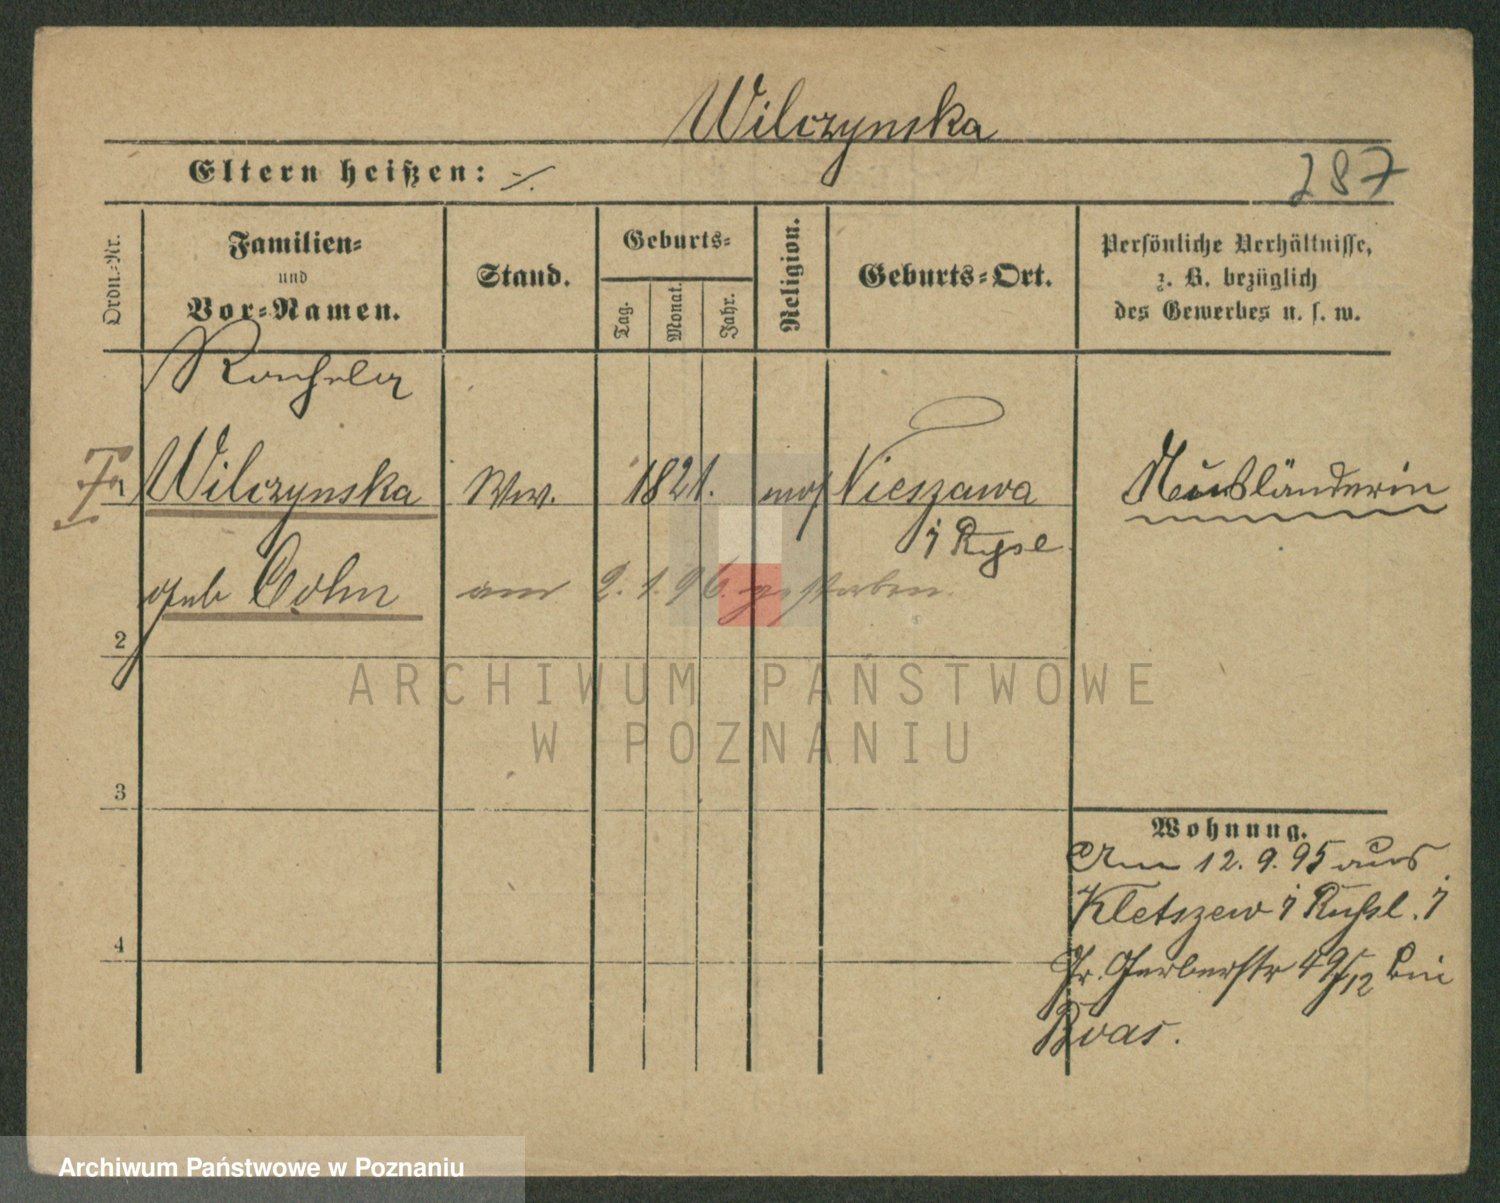 Wilczynska
Eltern heißen: ./.
287
Ordn.-Nr.
Familien-
und
Vor-Namen.
Stand.
Geburts-
Tag.
Monat.
Jahr.
Religion.
Geburts-Ort.
Persönliche Verhältnisse,
z. B. bezüglich
des Gewerbes u. s. w.
Wilczynska Ww. 1821. mos Nieszawa Ausländerin
geb Cohn am 2. 1. 96. gestorben.
2
3
4
Wohnung.
Am 12. 9. 95 aus
Kletszew i Rußl. i
Gr. Gerberstr 49/12 bei
Boas.
ARCHIWUM PAŃSTWOWE
W POZNANIU
Archiwum Państwowe w Poznaniu